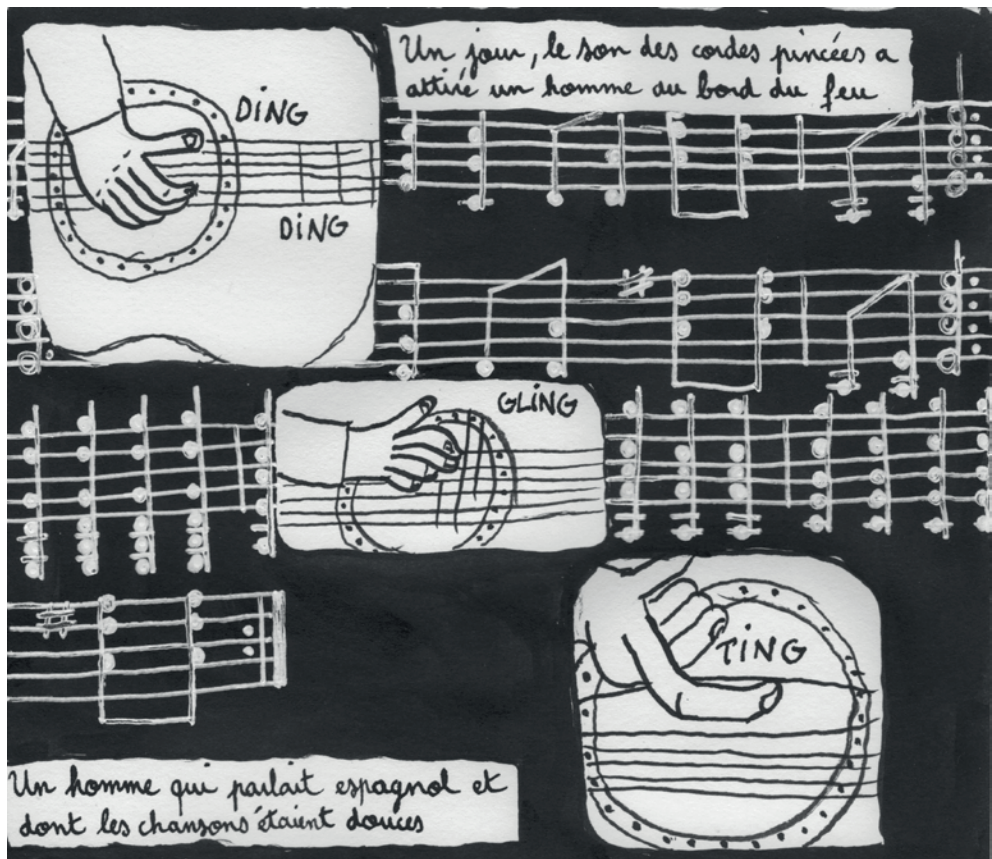 Un jour, le son des cordes pincées a
attiré un homme au bord du feu
DING
DING
GLING
TING
Un homme qui parlait espagnol et
dont les chansons étaient douces